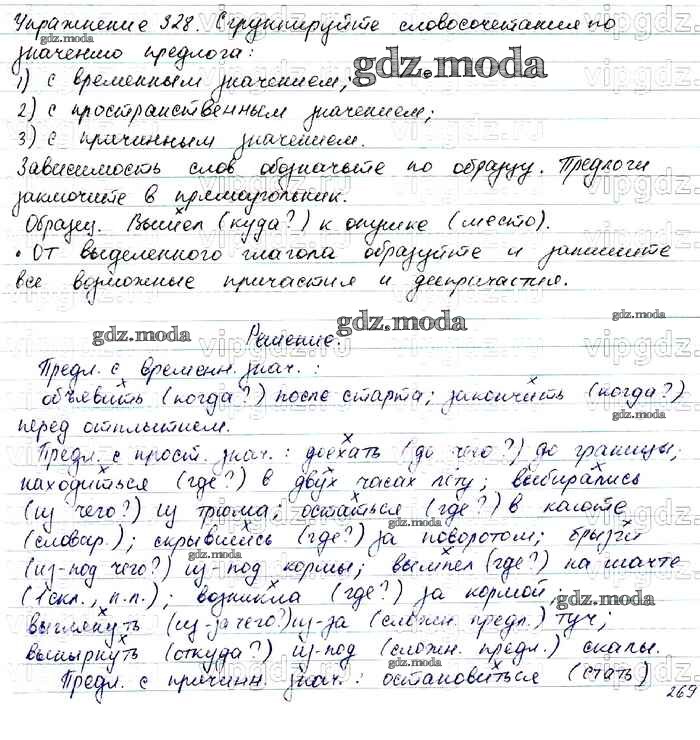 Упражнение 328. Сгруппируйте словосочетания по
значению предлога:
1) с временным значением;
gdz.moda
2) с пространственным значением;
3) с причинным значением.
Зависимость слов обозначьте по образцу. Предлоги
заключите в прямоугольник.
Образец. Вышел (куда?) к опушке (место).
• От выделенного глагола образуйте и запишите
все возможные причастия и деепричастия.
gdz.moda
Решение.
gdz.moda
Предл. с временн. знач.:
объявить (когда?) после старта; закончить (когда?)
gdz.moda
перед отплытием.
Предл. с прост. знач.: доехать (до чего?) до границы;
находиться (где?) в двух часах лёту; выбирались
(из чего?) из трюма; остаться (где?) в каюте
gdz.moda
(словар.); скрывшись (где?) за поворотом; брызги
(из-под чего?) из-под кормы; вымпел (где?) на мачте
(1 скл., п.п.); возникла (где?) за кормой,
gdz.moda
выглянуть (из-за чего?) из-за (сложн. предл.) туч;
вынырнуть (откуда?) из-под (сложн. предл.) скалы.
gdz.moda
Предл. с причинн. знач.: остановиться (стать)
269
vipgdz.ru